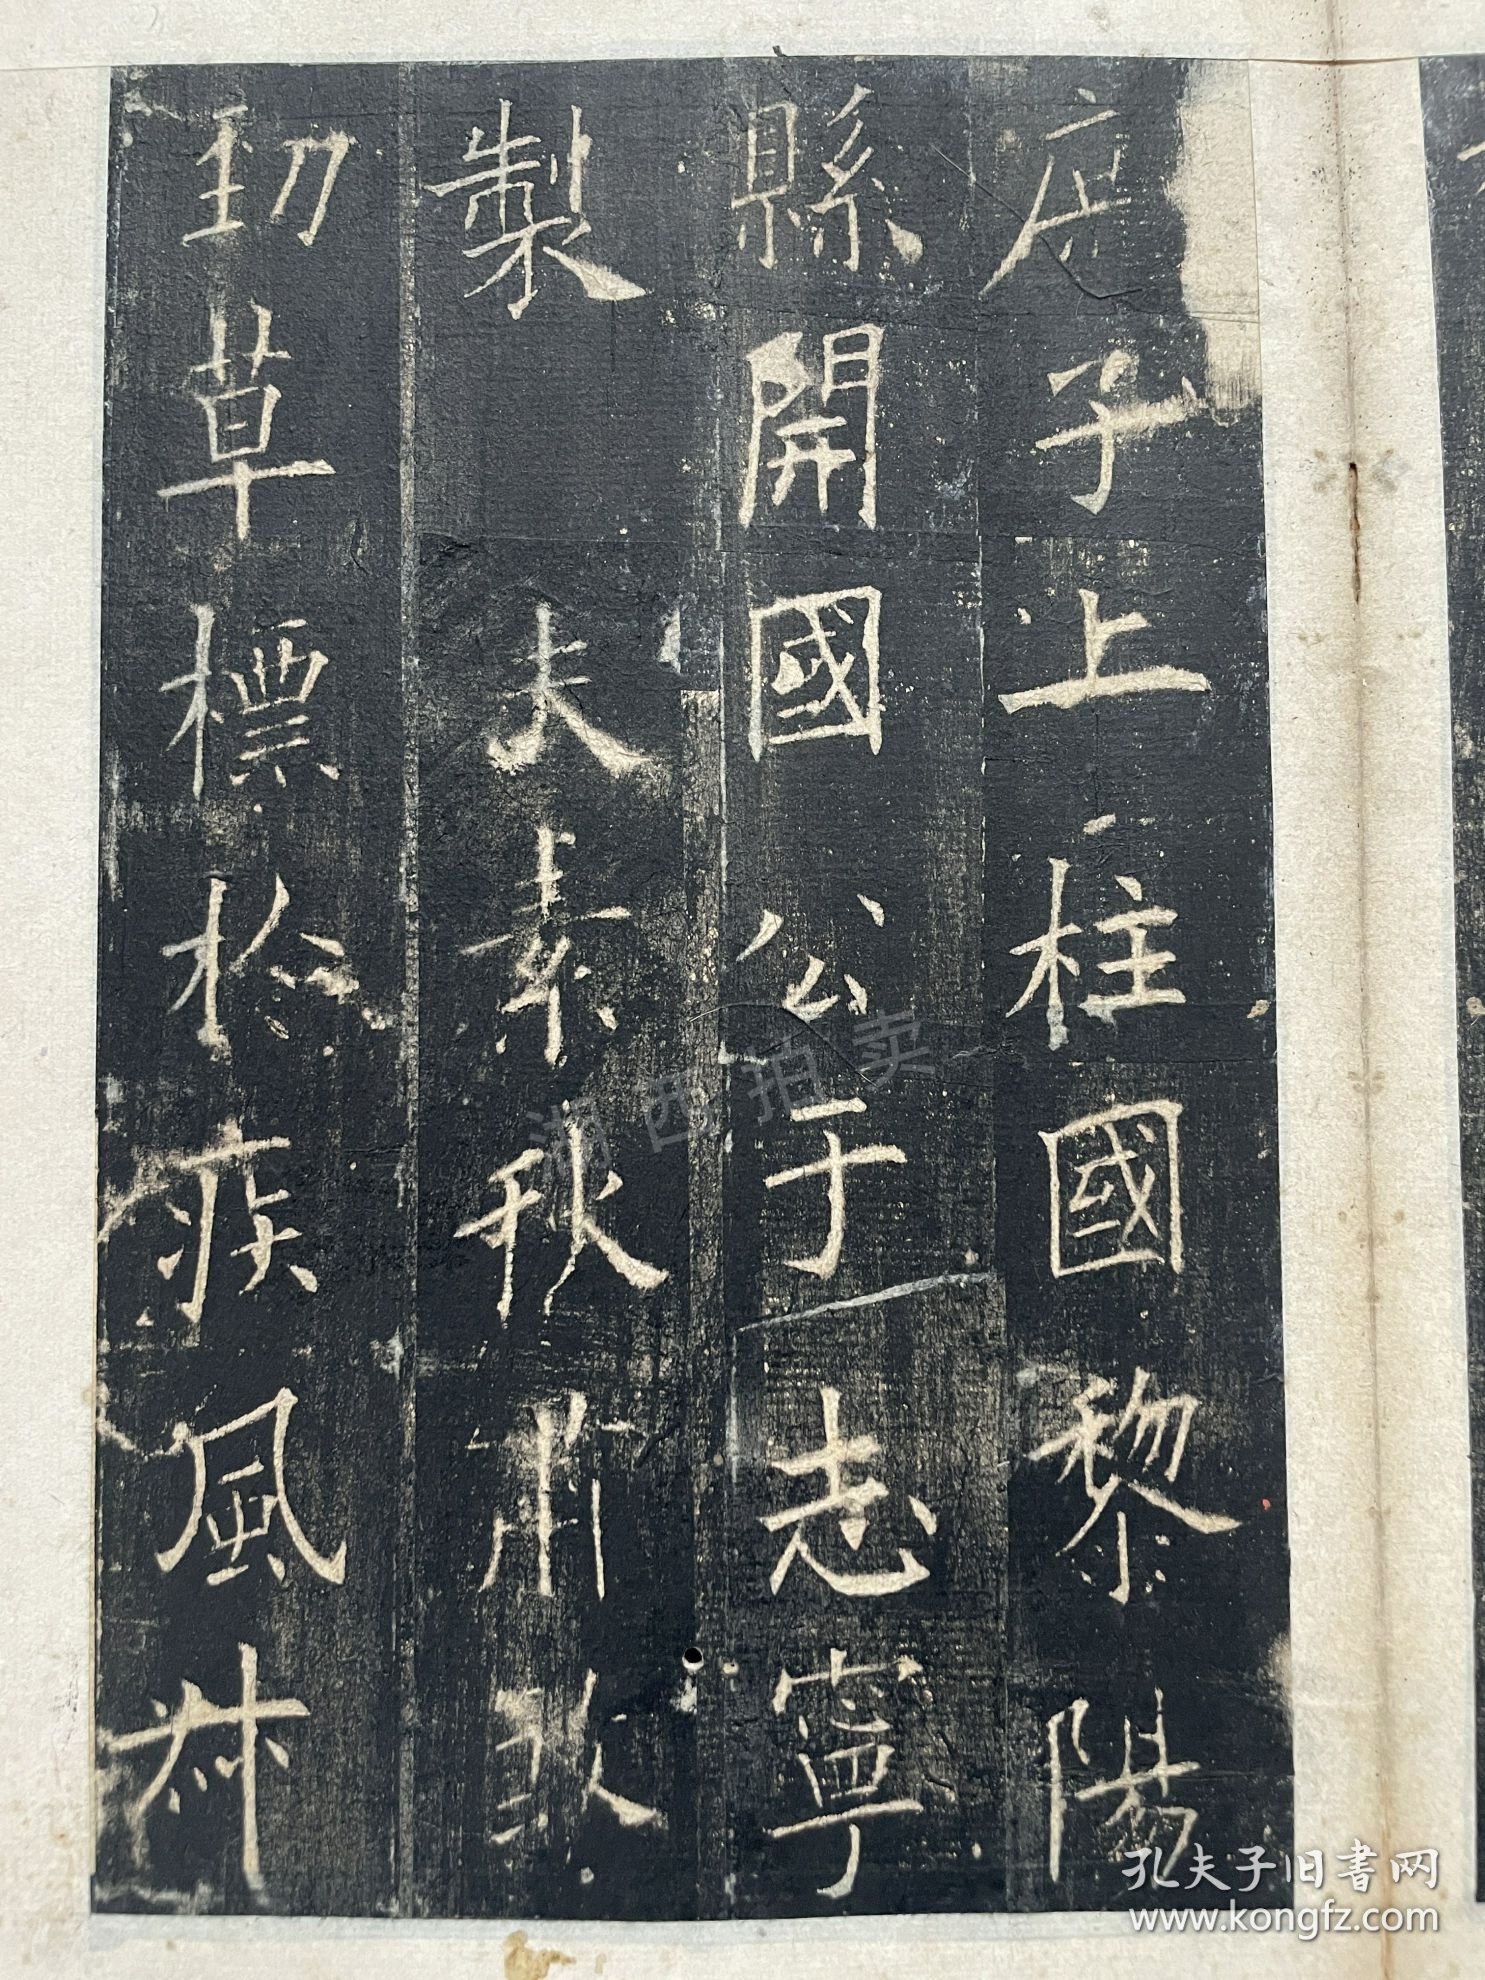 庶子上柱國黎陽
縣開國公于志寧
製 夫素秋肅煞
勁草標於疾風叔
湘西拍卖
孔夫子旧书网
www.kongfz.com